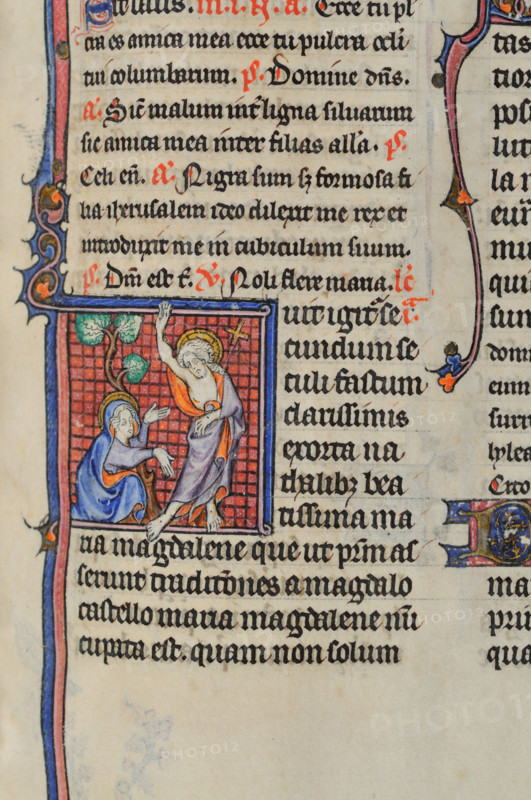 Ecce tu pl
cra es amica mea ecce tu pulcra oc̄li
tui columbarum. p̄. Domine dn̄s.
a. Sic̄ malum int̄ ligna siluarum
sic amica mea inter filias alla. p̄.
Celi en̄. a. Nigra sum sz formosa fi
lia iherusalem ideo dilexit me rex et
introduxit me in cubiculum suum.
p̄. Dn̄i est t̄. v̄. Noli flere maria. lc̄
uit igit̄ se i.
cundum se
culi fastum
clarissimis
exorta na
thalibz bea
tissima ma
ria magdalene que ut prīm as
serunt traditiōnes a magdalo
castello maria magdalene nū
cupata est. quam non solum
tas
tio
la
mu
qui
sun
dom
surr
ma
pri
qua
PHOTO12